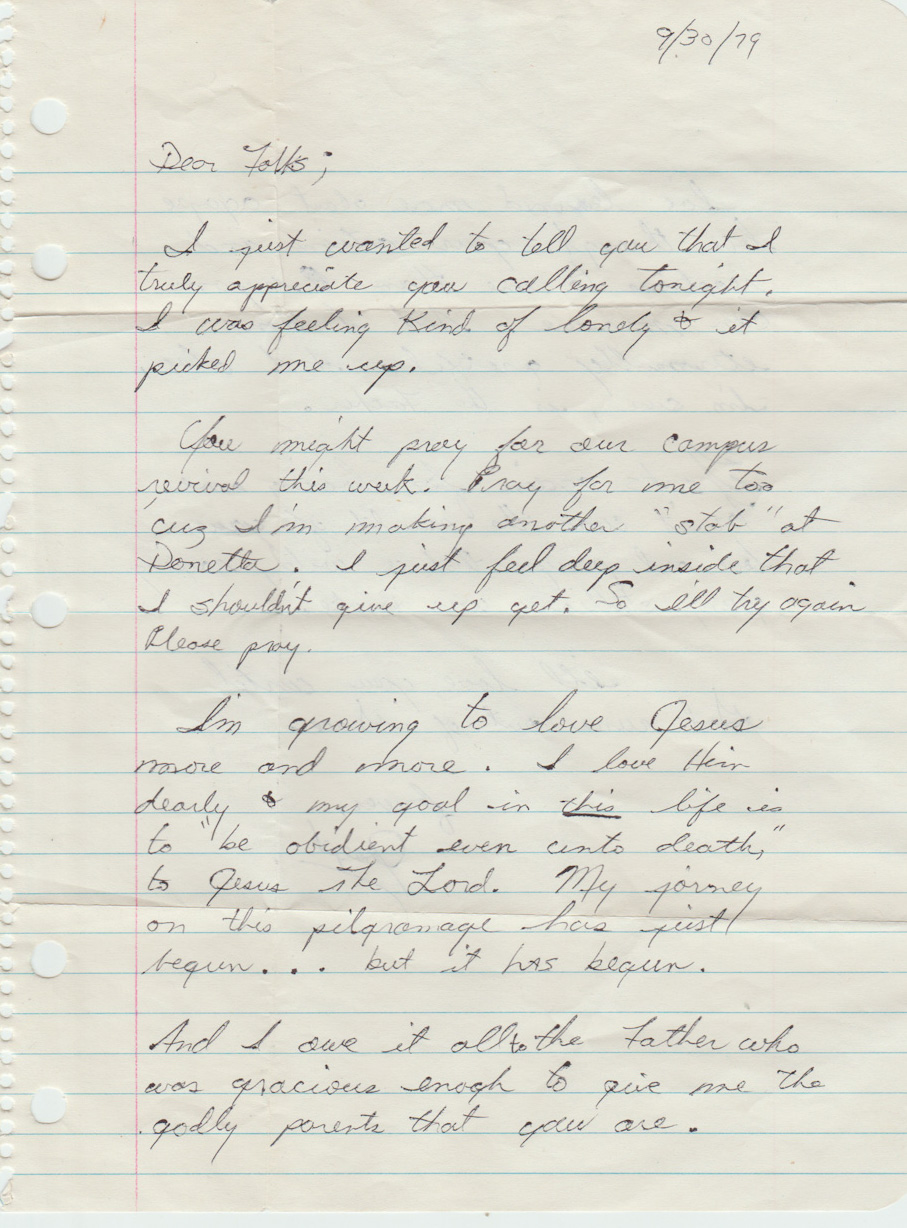 9/30/79
Dear Folks;
I just wanted to tell you that I
truly appreciate you calling tonight.
I was feeling kind of lonely & it
picked me up.
You might pray for our campus
revival this week. Pray for me too
'cuz I'm making another "stab" at
Donetta. I just feel deep inside that
I shouldn't give up yet. So I'll try again
Please pray.
I'm growing to love Jesus
more and more. I love Him
dearly & my goal in this life is
to "be obidient even unto death,"
to Jesus The Lord. My jorney
on this pilgramage has just
begun... but it HAS begun.
And I owe it all to the Father who
was gracious enogh to give me the
godly parents that you are.